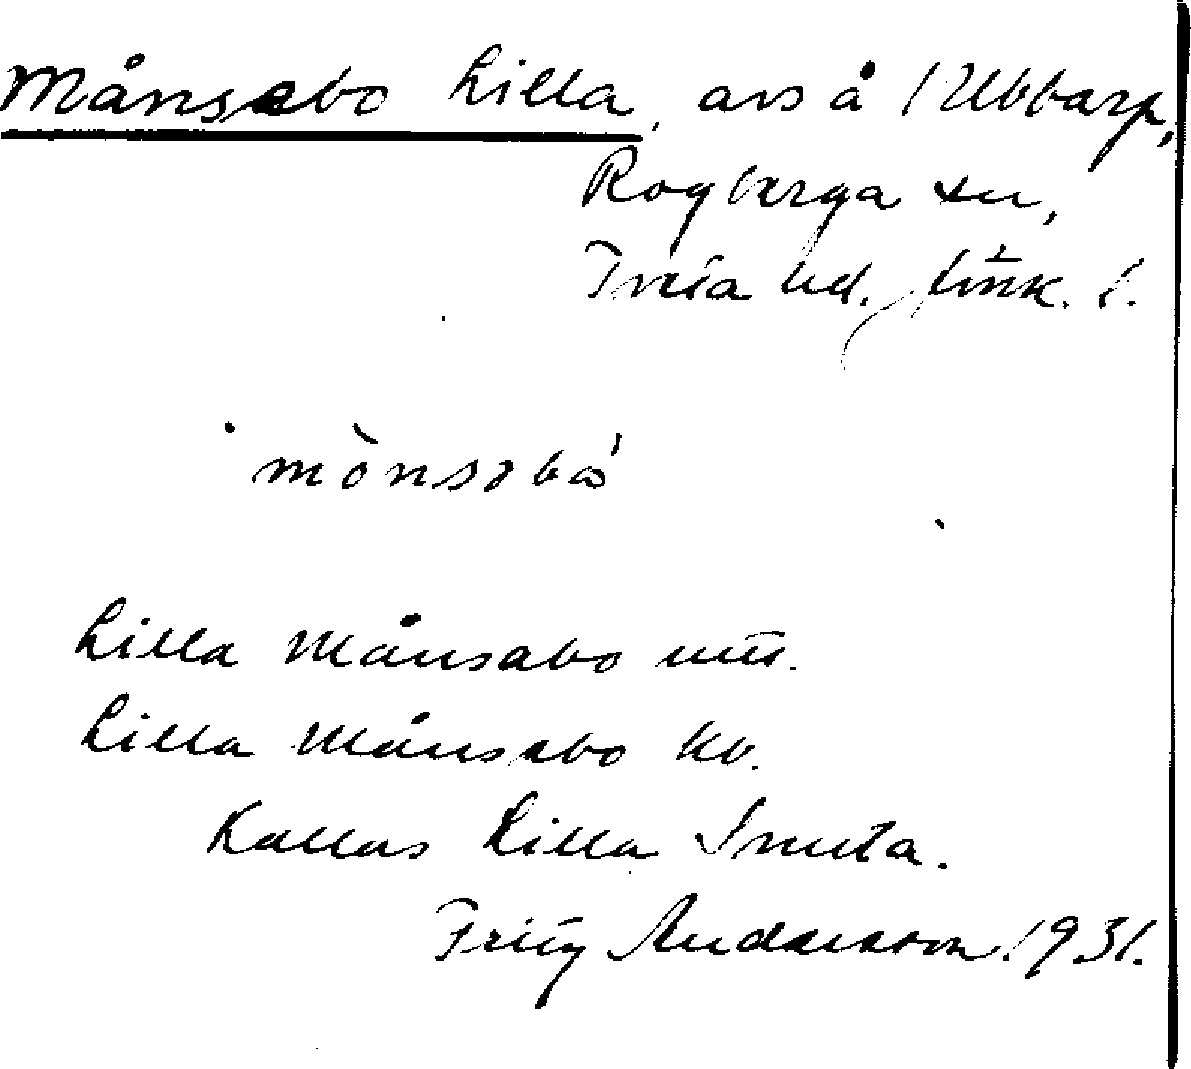 Månsabo Lilla, avs å 1 Ubbarp,
Rogberga sn,
Tveta hd. Jönk. l.
mònsabó
Lilla Månsabo mtl.
Lilla Månsabo kb.
Kallas Lilla Snuta.
Fritz Andersson. 1931.